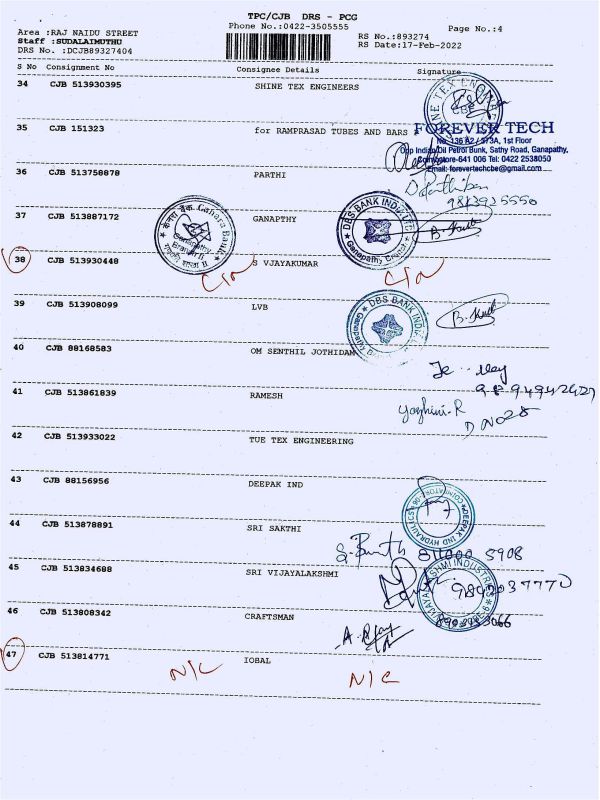 TPC/CJB DRS - PCG
Phone No.:0422-3505555
Page No.:4
Area :RAJ NAIDU STREET
Staff :SUDALAIMUTHU
DRS No. :DCJB89327404
RS No.:893274
RS Date:17-Feb-2022
S No Consignment No Consignee Details Signature
34 CJB 513930395 SHINE TEX ENGINEERS
35 CJB 151323 for RAMPRASAD TUBES AND BARS
FOREVER TECH
No. 136 A2 / 573A, 1st Floor
Opp Indian Oil Petrol Bunk, Sathy Road, Ganapathy,
Coimbatore-641 006 Tel: 0422 2538050
Email: forevertechcbe@gmail.com
36 CJB 513758878 PARTHI
37 CJB 513887172 GANAPTHY
केनरा बैंक Canara Bank
Ganapathy
Branch II
DBS BANK INDIA LTD
Ganapathy
38 CJB 513930448 S VJAYAKUMAR
39 CJB 513908099 LVB
DBS BANK INDIA
B.
40 CJB 88168583 OM SENTHIL JOTHIDAM
41 CJB 513861839 RAMESH
Yazhini.R
D NO 28
42 CJB 513933022 TUE TEX ENGINEERING
43 CJB 88156956 DEEPAK IND
DEEPAK IND HYDRAULICS
44 CJB 513878891 SRI SAKTHI
45 CJB 513834688 SRI VIJAYALAKSHMI
46 CJB 513808342 CRAFTSMAN
47 CJB 513814771 IOBAL
N/C N/C